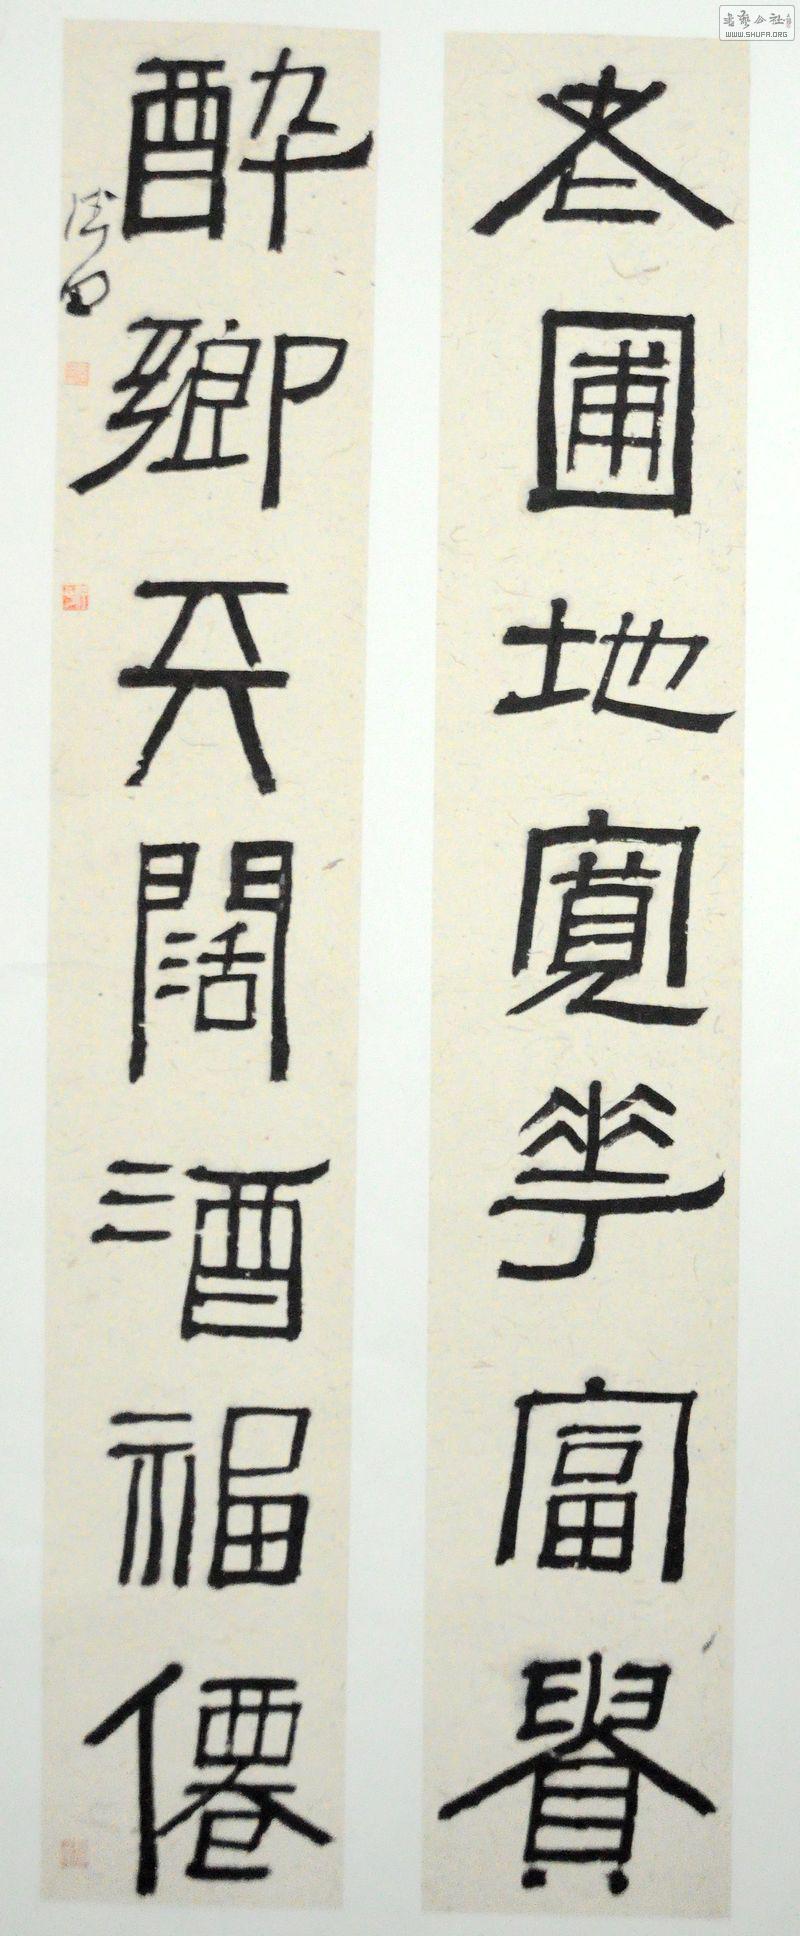 老圃地寬花富貴
醉鄉天闊酒福僊
书艺公社
WWW.SHUFA.ORG